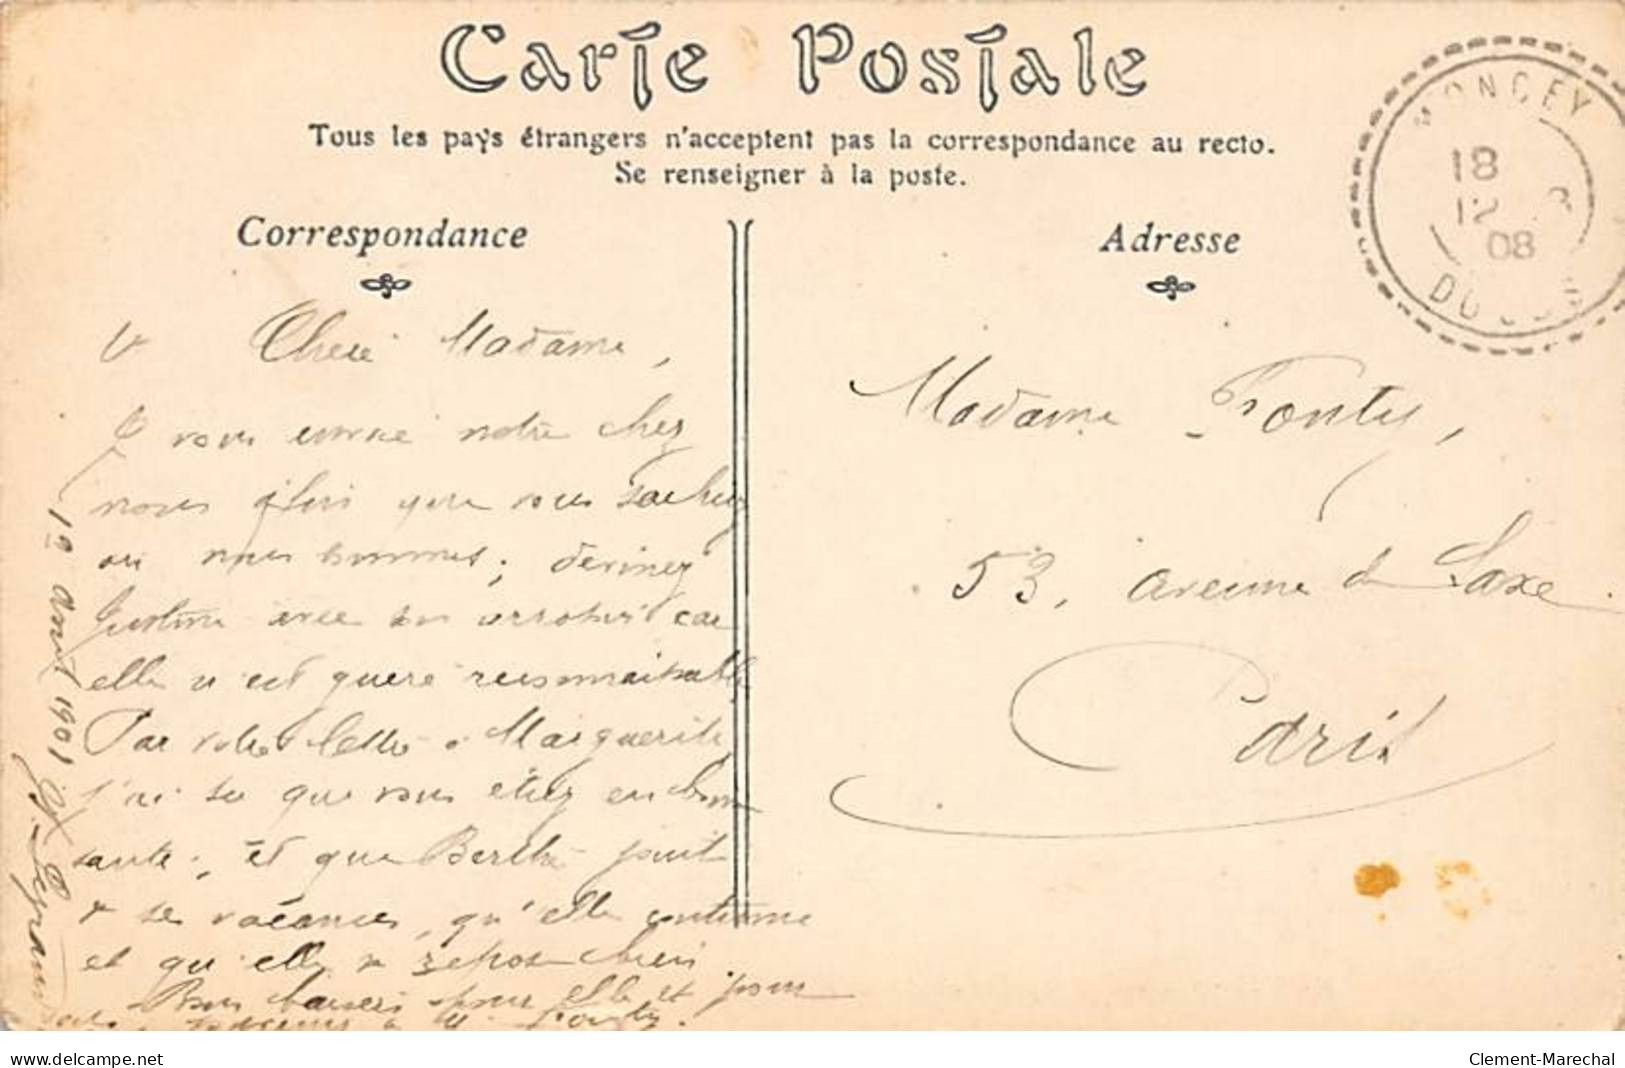 Carte Postale
Tous les pays étrangers n'acceptent pas la correspondance au recto.
Se renseigner à la poste.
Correspondance
Adresse
MONCEY
18
12
08
DOUBS
Chere Madame,
Je vous envoie notre chez
nous afin que vous sachiez
ou nous sommes; devinez
Justine avec son arrosoir car
elle n'est guere reconnaissable
Par votre lettre a Marguerite
j'ai su que vous etiez en bonne
sante; et que Berthe jouit
de ses vacances, qu'elle continue
et qu'elle se repose bien
Bons baisers pour elle et pour
Madame Fonty,
53, avenue de Saxe
Paris
delcampe.net
Clement-Marechal